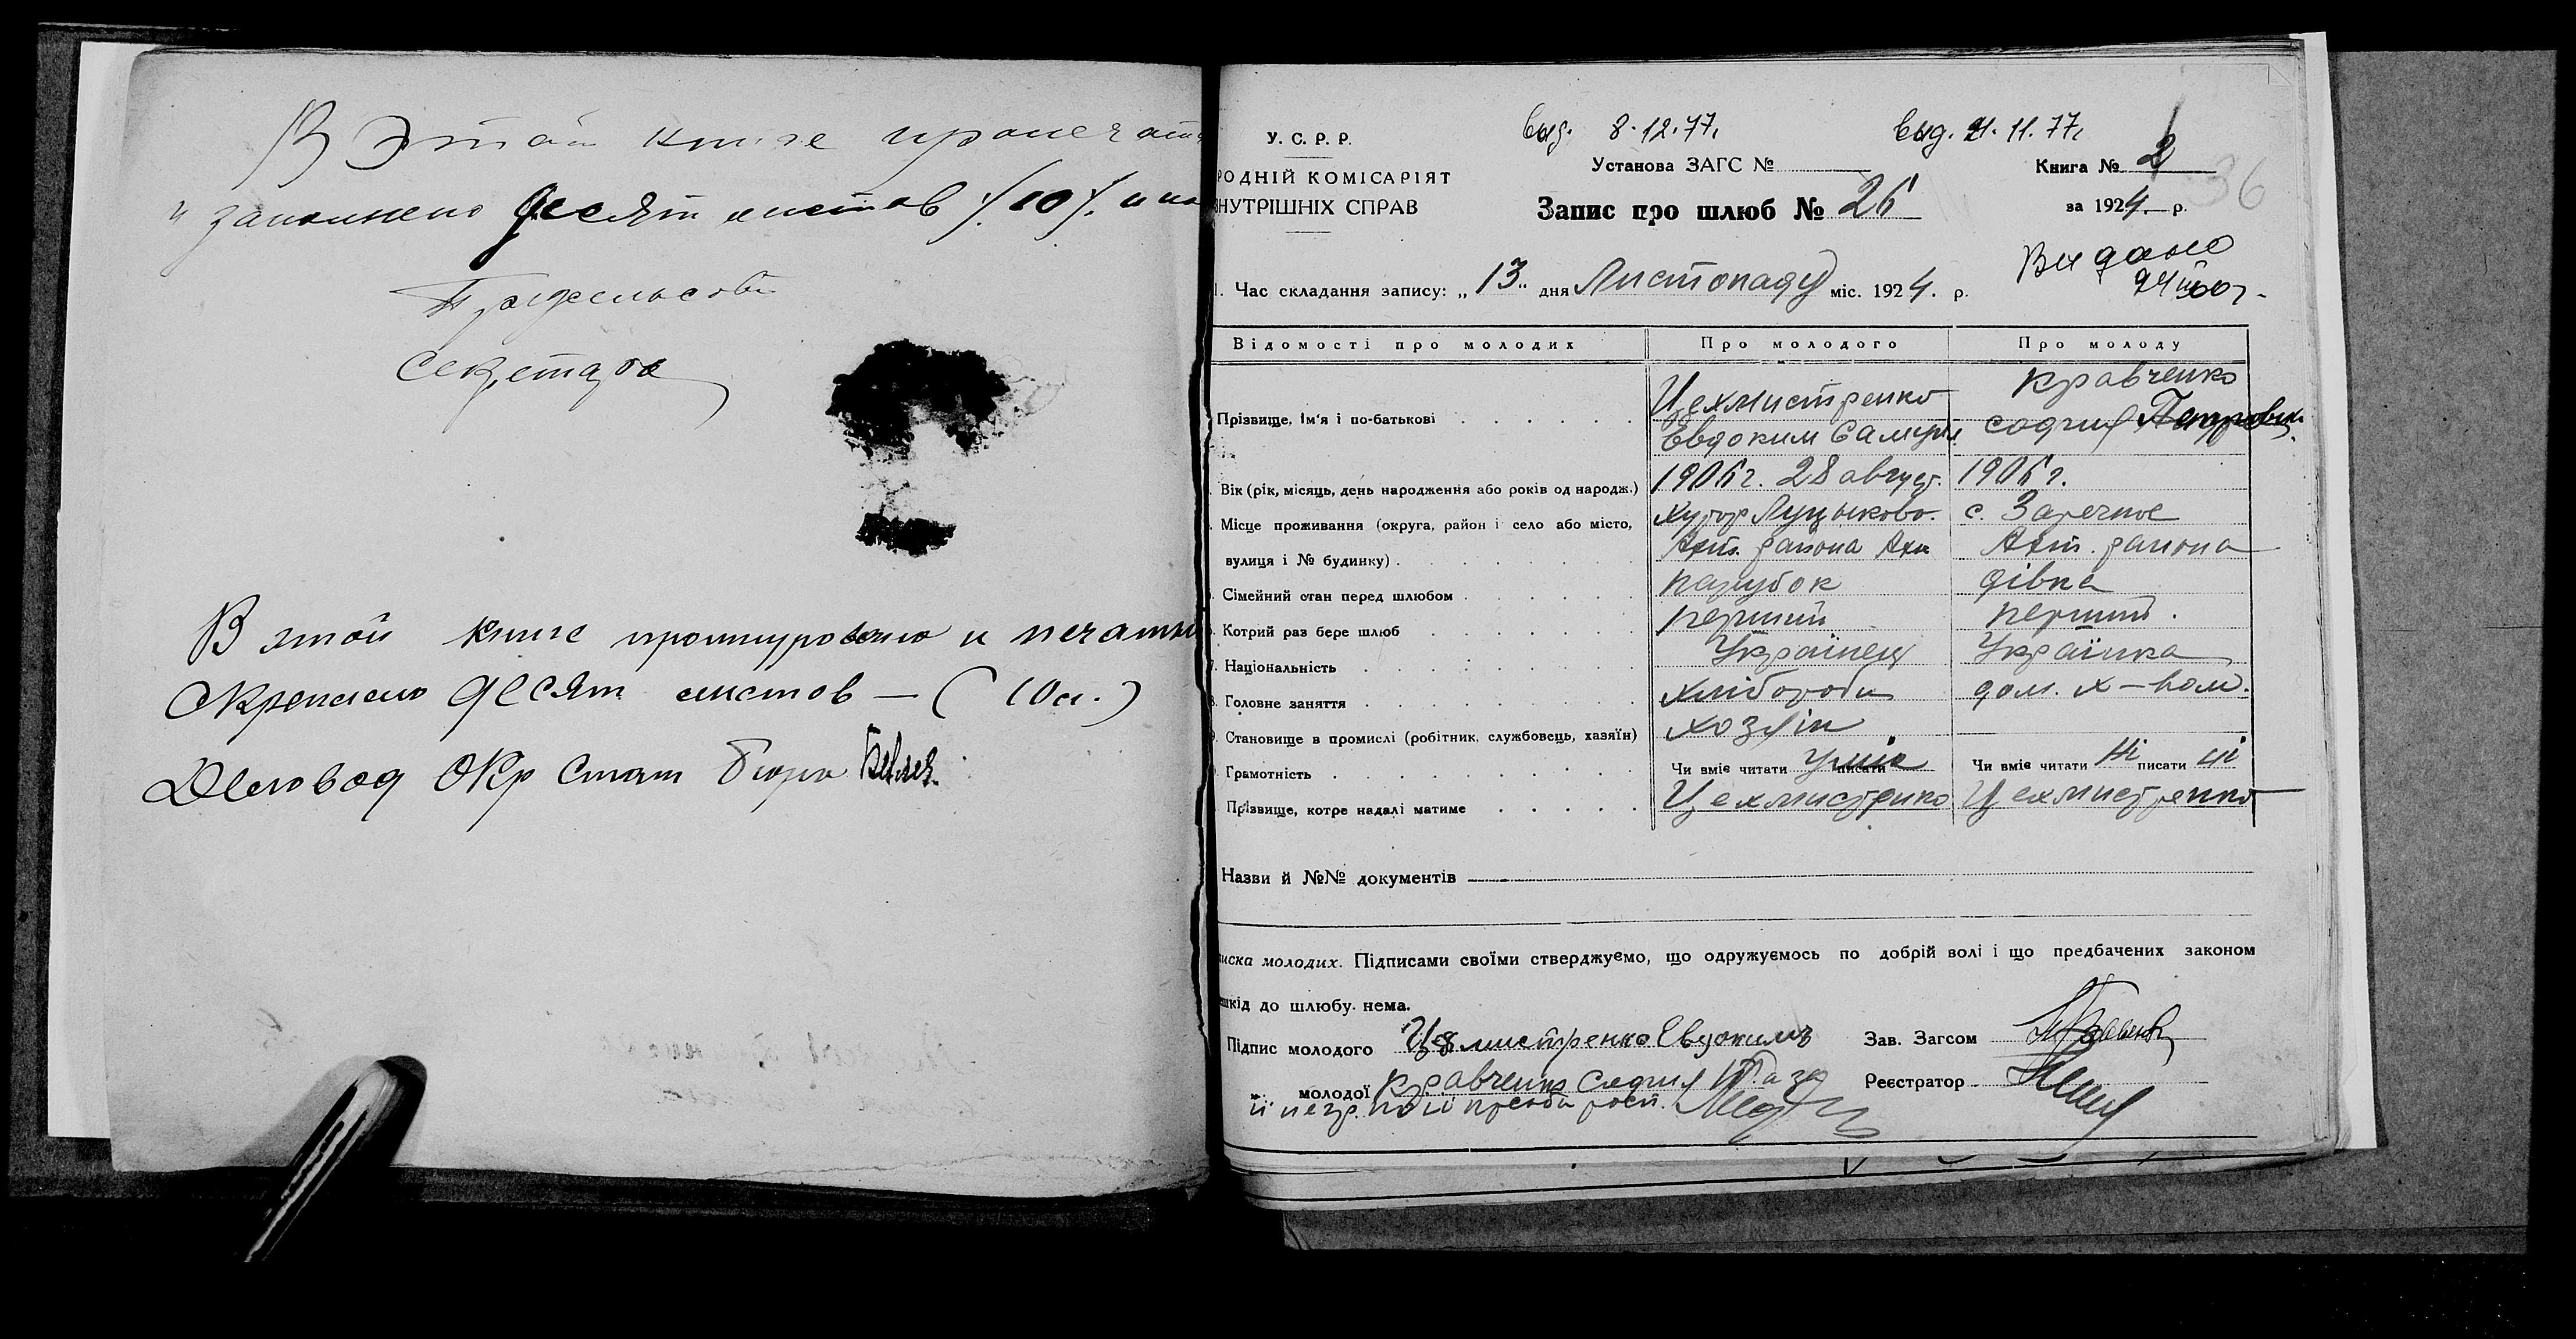 В этой книге пронечат
и заполнено десят листов /10/. и по
Предсельсовета
Секретарь
В этой книге прошнуровано и печатью
Скреплено десят листов — (10 л.)
Деловод Окр Стат бюро
У. С. Р. Р.
РОДНІЙ КОМІСАРІЯТ
НУТРІШНІХ СПРАВ
выд. 8.12.77.
выд. 21.11.77.
Установа ЗАГС №
Книга № 2
36
Запис про шлюб № 26
за 1924. р.
Видано
1. Час складання запису: „13" дня Листопаду міс. 1924. р.
Відомості про молодих Про молодого Про молоду
Прізвище, ім'я і по-батькові
Цехмистренко Кравченко
Евдоким Самуил София Петровн.
Вік (рік, місяць, день народження або років од народж.) 1906 г. 28 август. 1906 г.
Місце проживання (округа, район і село або місто, хутор Луциково. с. Заречное
вулиця і № будинку) Ахт. района Ахт Ахт. района
Сімейний стан перед шлюбом парубок дівка
Котрий раз бере шлюб перший перший.
7. Національність Українец Українка
8. Головне заняття хлібороб дом. х-вом.
9. Становище в промислі (робітник, службовець, хазяїн) хозяін
Грамотність Чи вміє читати уміє писати Чи вміє читати Ні писати ні
Прізвище, котре надалі матиме Цехмистренко Цехмистренко
Назви й №№ документів
иска молодих. Підписами своїми стверджуємо, що одружуємось по добрій волі і що предбачених законом
шкід до шлюбу нема.
Підпис молодого Цехмистренко Евдокимъ Зав. Загсом
„ молодої Кравченко София Реєстратор